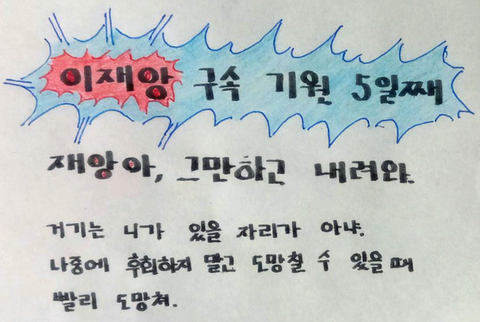 이재앙 구속 기원 5일째
재앙아, 그만하고 내려와.
거기는 니가 있을 자리가 아냐.
나중에 후회하지 말고 도망칠 수 있을 때
빨리 도망쳐.